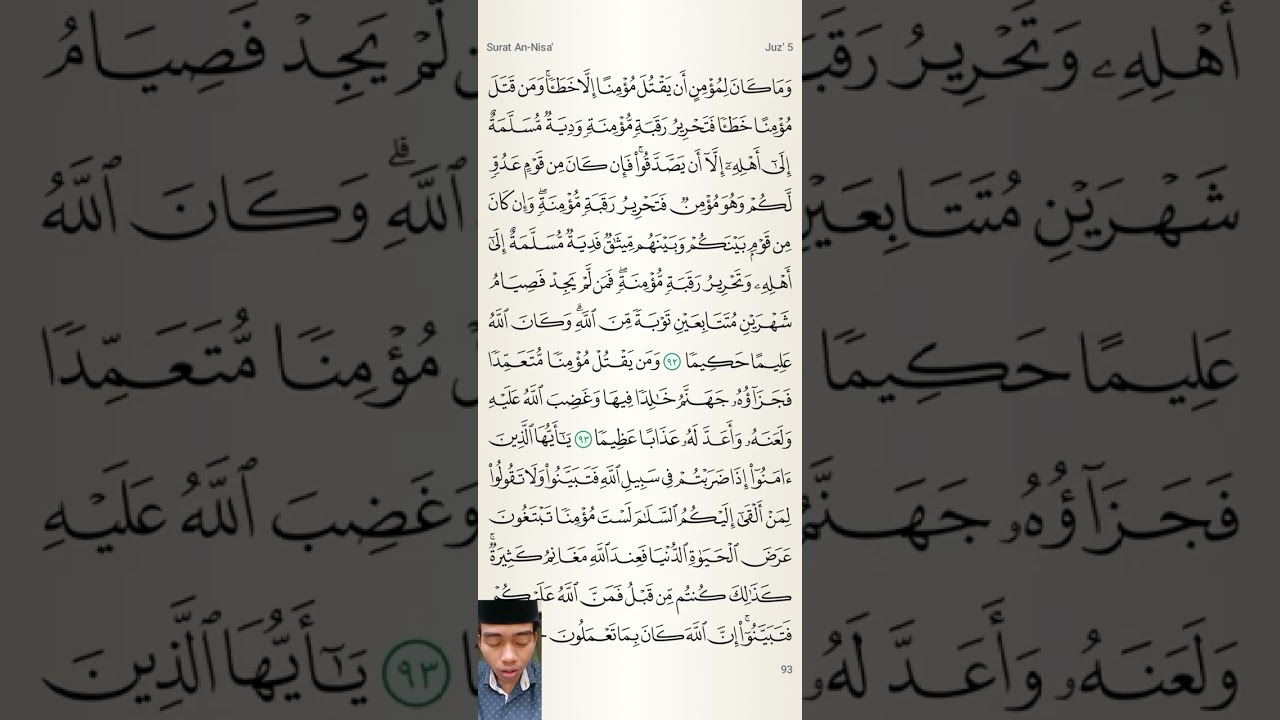 Surat An-Nisa' Juz' 5
وَمَا كَانَ لِمُؤْمِنٍ أَن يَقْتُلَ مُؤْمِنًا إِلَّا خَطَـًٔا ۚ وَمَن قَتَلَ
مُؤْمِنًا خَطَـًٔا فَتَحْرِيرُ رَقَبَةٍ مُّؤْمِنَةٍ وَدِيَةٌ مُّسَلَّمَةٌ
إِلَىٰٓ أَهْلِهِۦٓ إِلَّآ أَن يَصَّدَّقُوا۟ ۚ فَإِن كَانَ مِن قَوْمٍ عَدُوٍّ
لَّكُمْ وَهُوَ مُؤْمِنٌ فَتَحْرِيرُ رَقَبَةٍ مُّؤْمِنَةٍ ۖ وَإِن كَانَ
مِن قَوْمٍۭ بَيْنَكُمْ وَبَيْنَهُم مِّيثَـٰقٌ فَدِيَةٌ مُّسَلَّمَةٌ إِلَىٰٓ
أَهْلِهِۦ وَتَحْرِيرُ رَقَبَةٍ مُّؤْمِنَةٍ ۖ فَمَن لَّمْ يَجِدْ فَصِيَامُ
شَهْرَيْنِ مُتَتَابِعَيْنِ تَوْبَةً مِّنَ ٱللَّهِ ۗ وَكَانَ ٱللَّهُ
عَلِيمًا حَكِيمًا ٩٢ وَمَن يَقْتُلْ مُؤْمِنًا مُّتَعَمِّدًا
فَجَزَآؤُهُۥ جَهَنَّمُ خَـٰلِدًا فِيهَا وَغَضِبَ ٱللَّهُ عَلَيْهِ
وَلَعَنَهُۥ وَأَعَدَّ لَهُۥ عَذَابًا عَظِيمًا ٩٣ يَـٰٓأَيُّهَا ٱلَّذِينَ
ءَامَنُوٓا۟ إِذَا ضَرَبْتُمْ فِى سَبِيلِ ٱللَّهِ فَتَبَيَّنُوا۟ وَلَا تَقُولُوا۟
لِمَنْ أَلْقَىٰٓ إِلَيْكُمُ ٱلسَّلَـٰمَ لَسْتَ مُؤْمِنًا تَبْتَغُونَ
عَرَضَ ٱلْحَيَوٰةِ ٱلدُّنْيَا فَعِندَ ٱللَّهِ مَغَانِمُ كَثِيرَةٌ ۚ
كَذَٰلِكَ كُنتُم مِّن قَبْلُ فَمَنَّ ٱللَّهُ عَلَيْكُمْ
فَتَبَيَّنُوٓا۟ ۚ إِنَّ ٱللَّهَ كَانَ بِمَا تَعْمَلُونَ
93